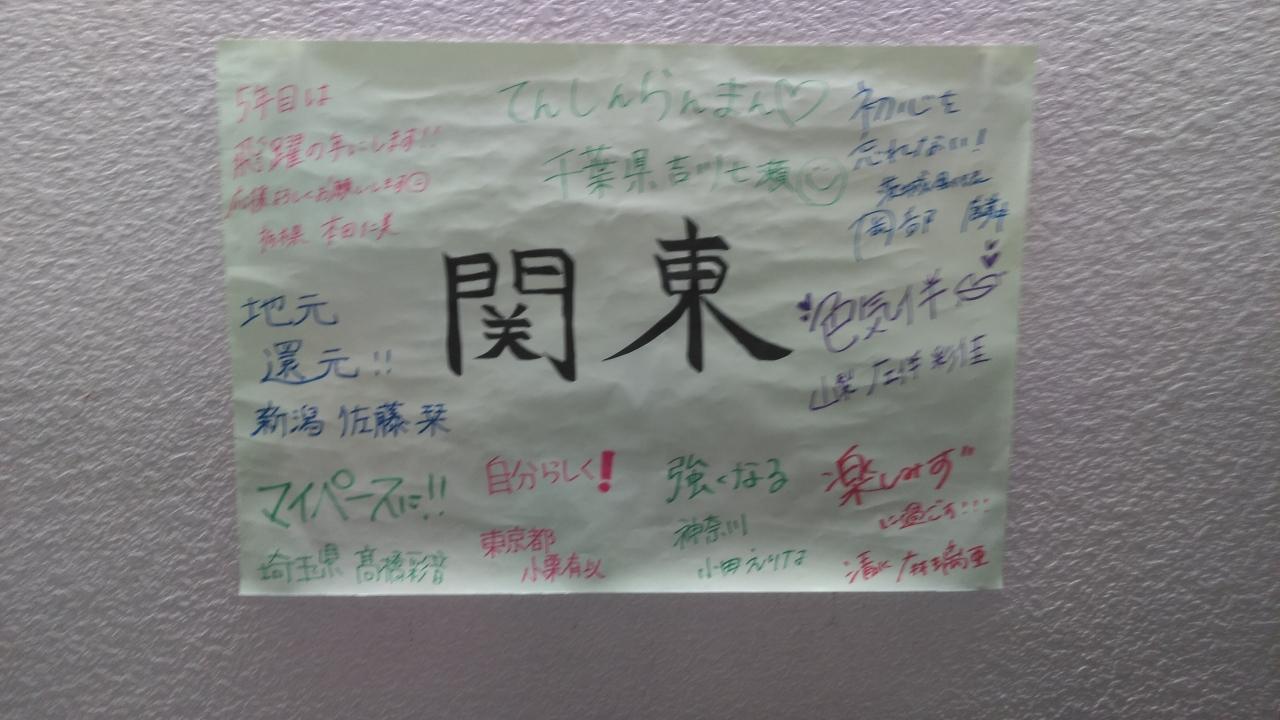 5年目は
飛躍の年にします!!
今後よろしくお願いします
栃木県 本田仁美
てんしんらんまん♡
千葉県 吉川七瀬
初心を
忘れない!
茨城県
岡部 麟
関東
地元
還元!!
新潟 佐藤栞
色気伴
山梨 左伴彩佳
マイペースに!!
埼玉県 髙橋彩音
自分らしく!
東京都
小栗有以
強くなる
神奈川
小田えりな
楽しみす"
に過ごす!!!
清水 麻璃亜